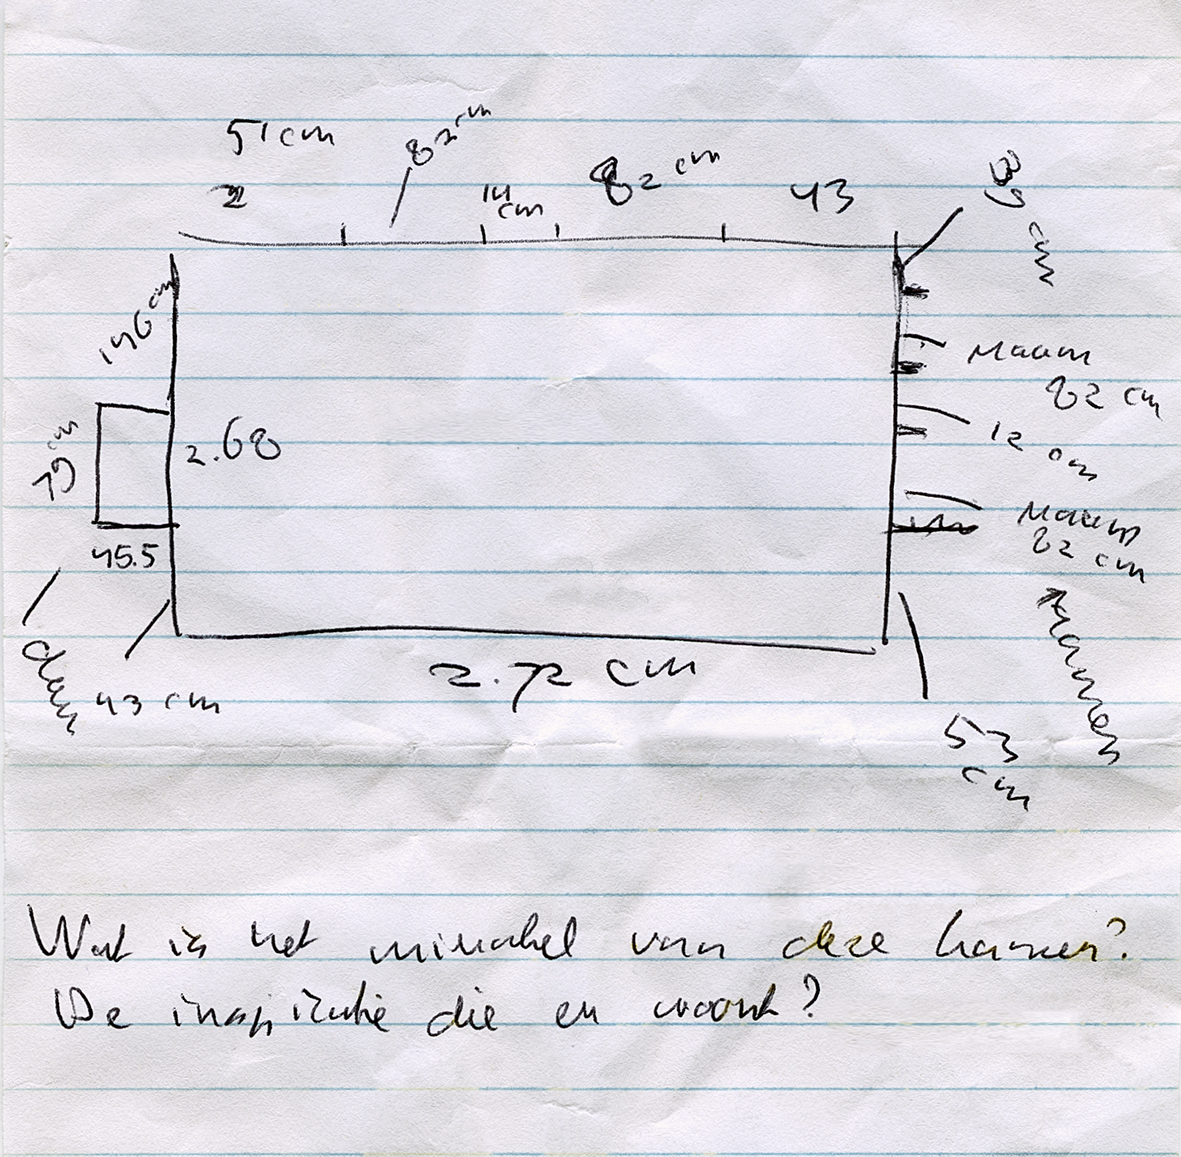 51 cm
82 cm
14 cm
82 cm
43
39 cm
146 cm
raam
82 cm
79 cm
2.68
12 cm
raam
82 cm
45.5
deur
43 cm
2.72 cm
ramen
53 cm
Wat is het mirakel van deze kamer?
De inspiratie die er woont?